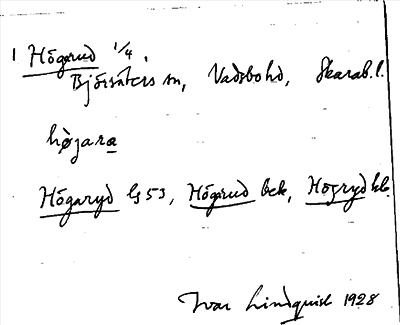 1 Högarud 1/4.
Björsäters sn, Vadsbo hd, Skarab. l.
högara
Högaryd Ls 53, Högarud bek,
Ivar Lindquist 1928